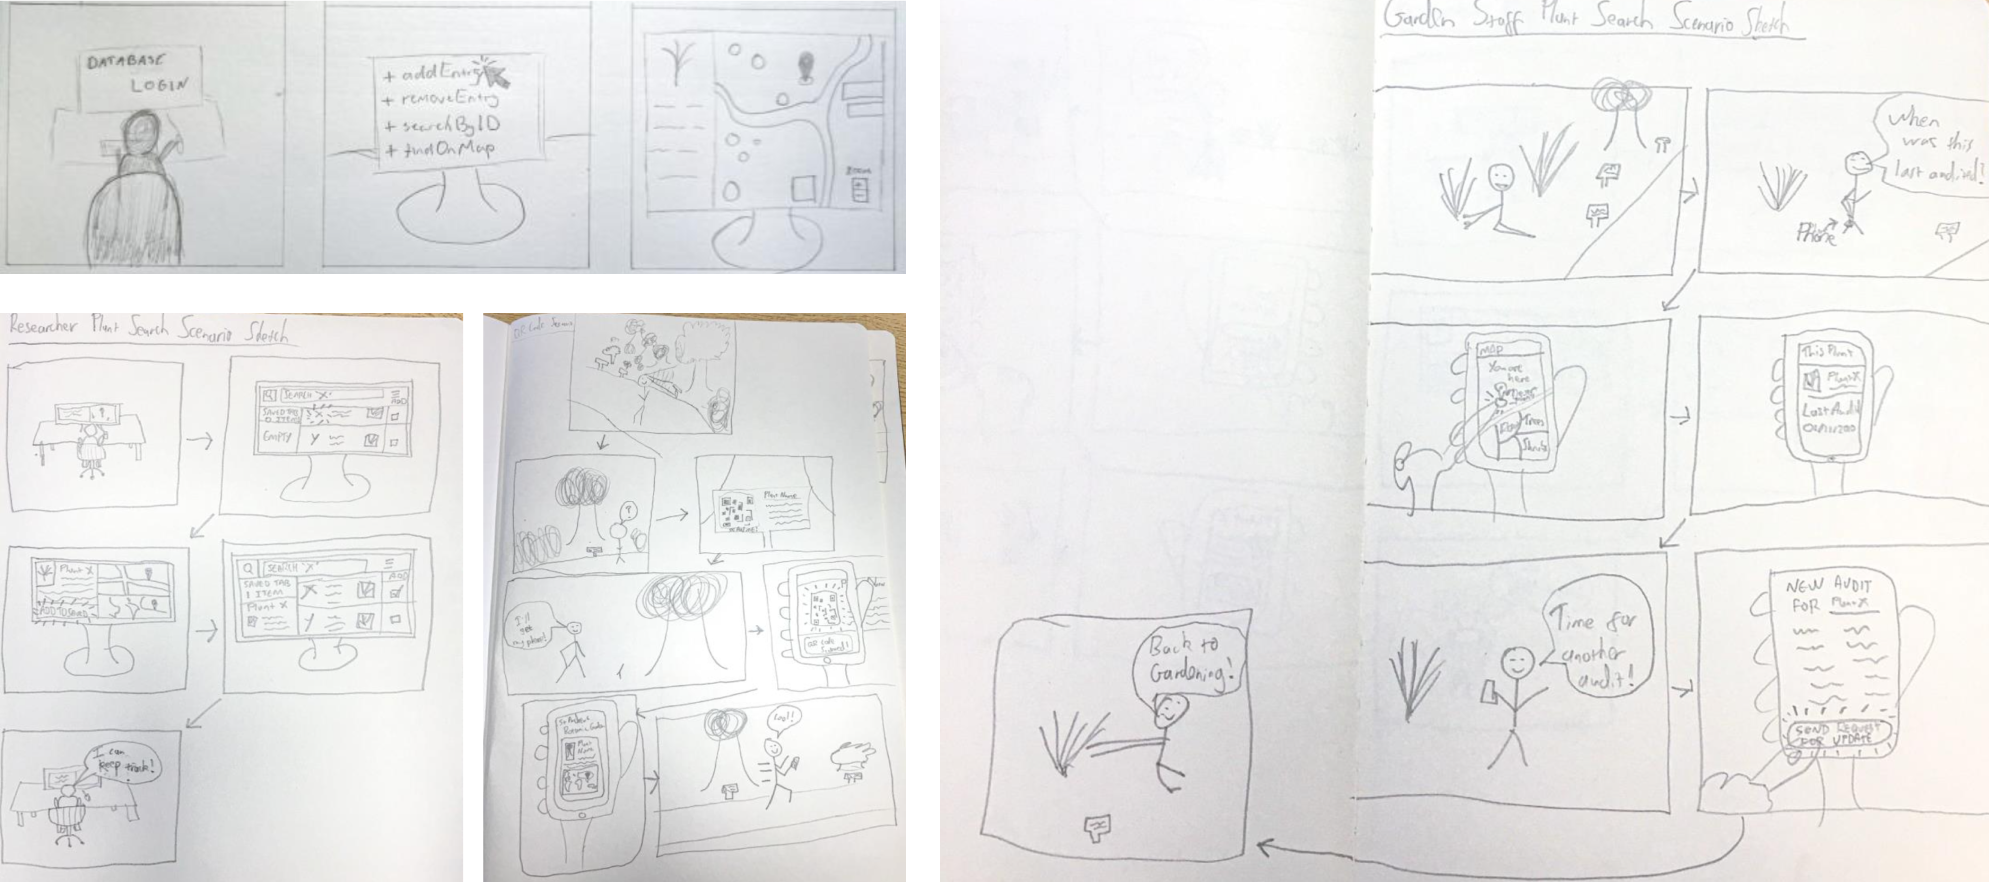 DATABASE
LOGIN
+ addEntry
+ removeEntry
+ searchByID
+ findOnMap
Researcher Plant Search Scenario Sketch
SEARCH "X"
ADD
SAVED TAB
0 ITEMS
X
EMPTY
Y
Plant X
ADD TO SAVED
SEARCH "X"
ADD
SAVED TAB
1 ITEM
X
Plant X
Y
I can
keep track!
QR Code Scenario
?
Plant Name
I'll
get
my phone!
QR Code
Botanic Garden
Plant
Name
Cool!
Garden Staff Plant Search Scenario Sketch
When
was this
last audited?
Phone
MAP
You are
here
Trees
Shrubs
This Plant
Plant X
Last Audit
Time for
another
audit!
NEW AUDIT
FOR Plant X
SEND REQUEST
FOR UPDATE
Back to
Gardening!